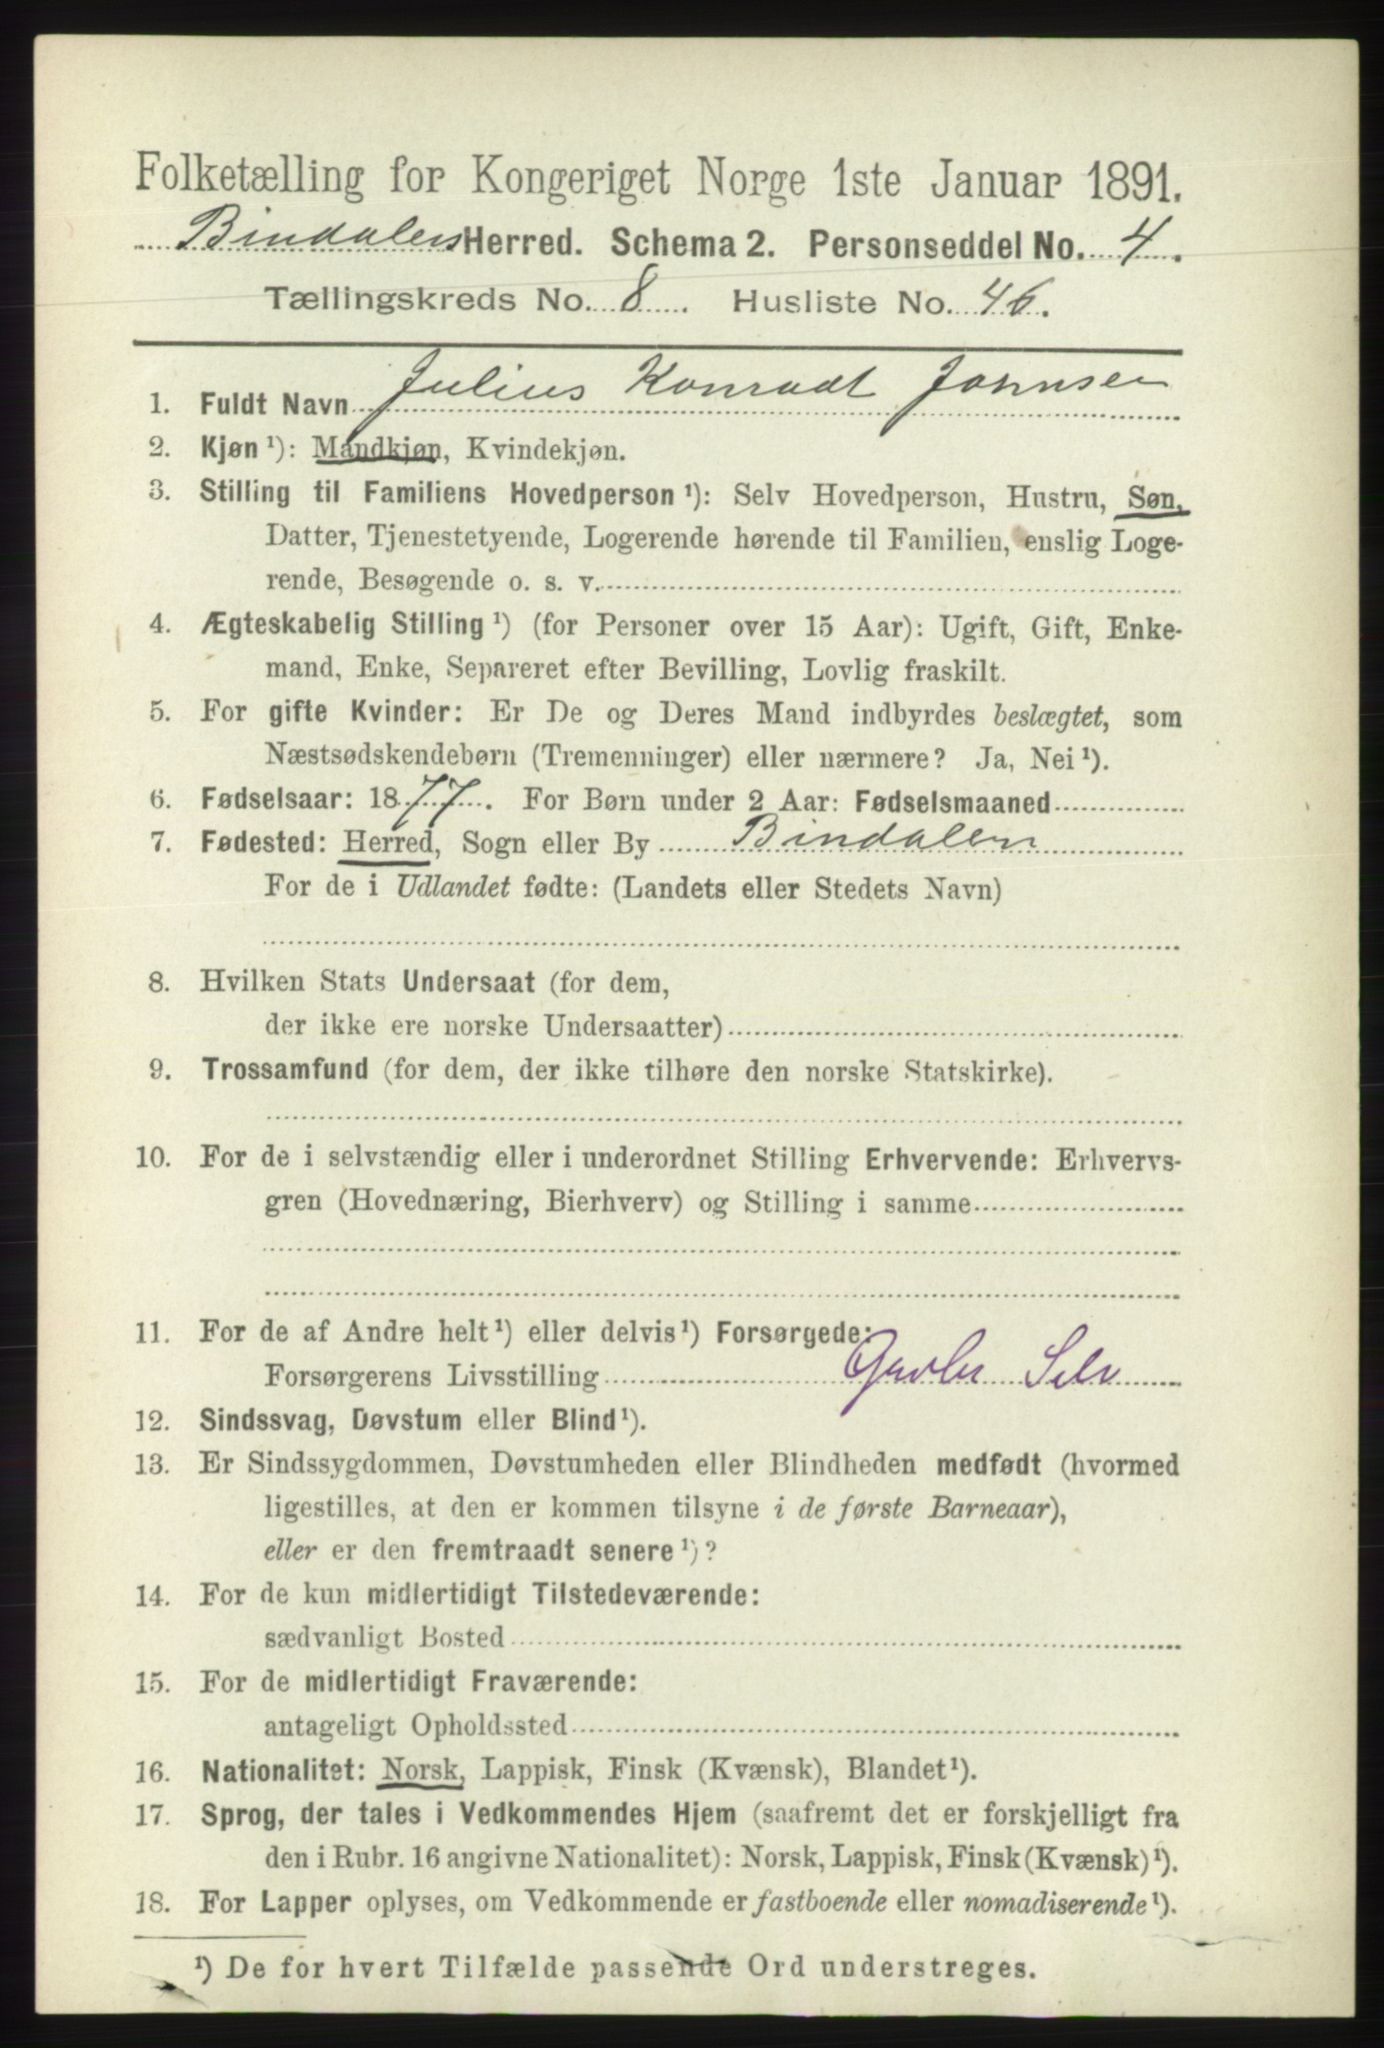 Folketælling for Kongeriget Norge 1ste Januar 1891.
Bindalens Herred. Schema 2. Personseddel No. 4.
Tællingskreds No. 8. Husliste No. 46.
1. Fuldt Navn Julius Konradt Johnsen
2. Kjøn ¹): Mandkjøn, Kvindekjøn.
3. Stilling til Familiens Hovedperson ¹): Selv Hovedperson, Hustru, Søn,
Datter, Tjenestetyende, Logerende hørende til Familien, enslig Loge-
rende, Besøgende o. s. v.
4. Ægteskabelig Stilling ¹) (for Personer over 15 Aar): Ugift, Gift, Enke-
mand, Enke, Separeret efter Bevilling, Lovlig fraskilt.
5. For gifte Kvinder: Er De og Deres Mand indbyrdes beslægtet, som
Næstsødskendebørn (Tremenninger) eller nærmere? Ja, Nei ¹).
6. Fødselsaar: 1877. For Børn under 2 Aar: Fødselsmaaned
7. Fødested: Herred, Sogn eller By Bindalen
For de i Udlandet fødte: (Landets eller Stedets Navn)
8. Hvilken Stats Undersaat (for dem,
der ikke ere norske Undersaatter)
9. Trossamfund (for dem, der ikke tilhøre den norske Statskirke).
10. For de i selvstændig eller i underordnet Stilling Erhvervende: Erhvervs-
gren (Hovednæring, Bierhverv) og Stilling i samme
11. For de af Andre helt ¹) eller delvis ¹) Forsørgede:
Forsørgerens Livsstilling Selv
12. Sindssvag, Døvstum eller Blind ¹).
13. Er Sindssygdommen, Døvstumheden eller Blindheden medfødt (hvormed
ligestilles, at den er kommen tilsyne i de første Barneaar),
eller er den fremtraadt senere ¹)?
14. For de kun midlertidigt Tilstedeværende:
sædvanligt Bosted
15. For de midlertidigt Fraværende:
antageligt Opholdssted
16. Nationalitet: Norsk, Lappisk, Finsk (Kvænsk), Blandet ¹).
17. Sprog, der tales i Vedkommendes Hjem (saafremt det er forskjelligt fra
den i Rubr. 16 angivne Nationalitet): Norsk, Lappisk, Finsk (Kvænsk) ¹).
18. For Lapper oplyses, om Vedkommende er fastboende eller nomadiserende ¹).
¹) De for hvert Tilfælde passende Ord understreges.